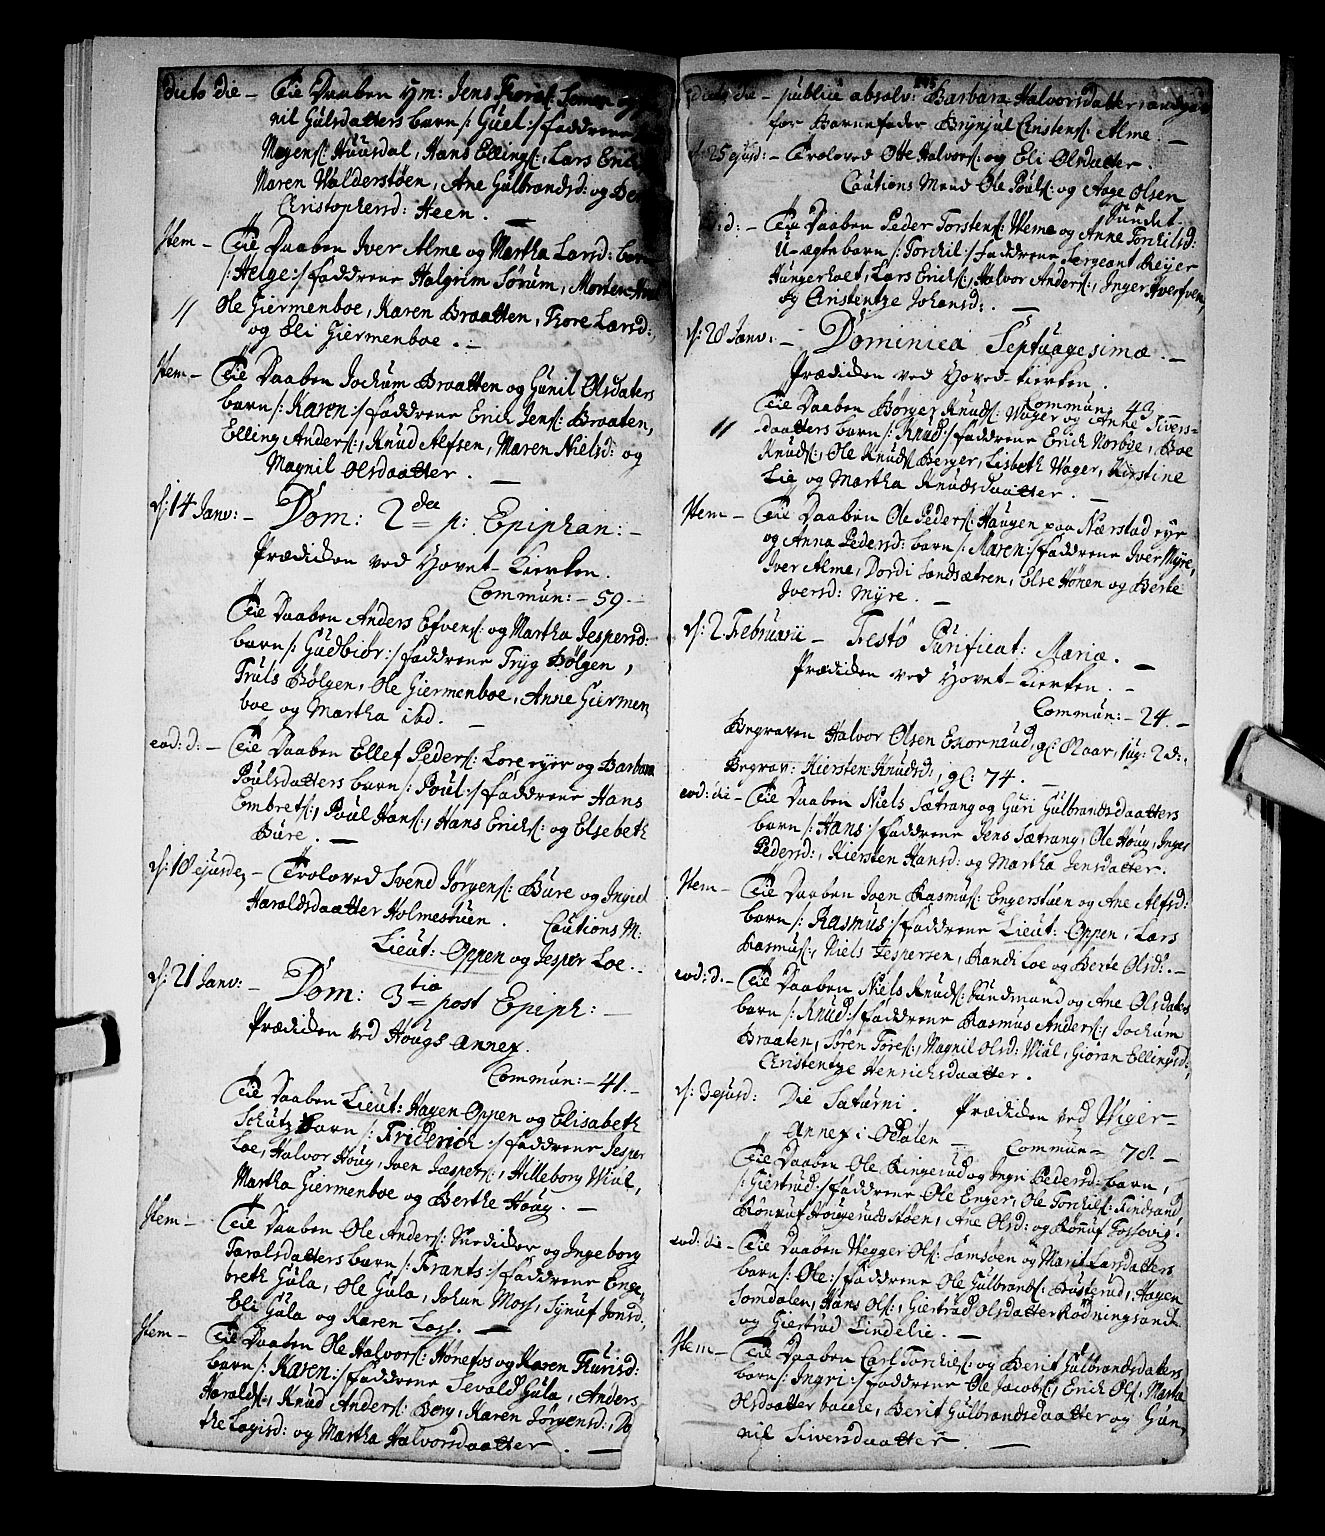 dicto die – Til Daaben ym: Jens Thores:
nil Gulsdatters barn /: Guel :/ faddrene
Mogens: Huusdal, Hans Ellings:, Lars
Maren Walderstøen, Ane Gulbrandsd: og
Christophersd: Heen. –
Item – Til Daaben Iver Alme og Martha Larsd: barn
/: Helge :/ faddrene Halgrim Sørum, Morten
// Ole Giermenboe, Karen Braatten, Thore Larsd:,
og Eli Giermenboe. –
Item – Til Daaben Jochum Braatten og Gunil Olsdatters
barn /: Karen :/ faddrene Erich Jens: Braaten,
Elling Anders:, Knud Alfsen, Maren Nielsd: og
Magnil Olsdaatter. –
d: 14 Janv: – Dom: 2den p: Epiphan: –
Prædiken ved Hovet-Kierken.
Commun: – 59. –
Til Daaben Anders Efvens: og Martha Jespersd:
barn /: Gudbiør :/ faddrene Tryg Bølgen,
Truls Bølgen, Ole Giermenboe, Anne Giermen
boe og Martha ibd. –
eod: d: – Til Daaben Ellef Peders: Lore eyer og Barbara
Poulsdatters barn /: Poul :/ faddrene Hans
Embrets:, Poul Hans:, Hans Erichs: og Elsebeth
Bure. –
d: 18 ejusde, – Troloved Svend Jørgens: Bure og Ingiel
Haraldsdaatter Holmestuen. Cautions M:
Lieut: Oppen og Jesper Loe. –
d: 21 Janv: – Dom: 3tia post Epiph: –
Prædiken ved Hougs annex.
Commun: – 41. –
Til Daaben Lieut: Hagen Oppen og Elisabeth
Schutz barn /: Friderich :/ faddrene Jesper
Loe, Halvor Houg, Joen Jespers:, Hilleborg Wiul,
Martha Giermenboe og Berthe Houg. –
Item – Til Daaben Ole Anders: og Ingeborg
Taralsdatters barn /: Frants :/ faddrene Enge,
breth Gula, Ole Gula, Johan Moss, Synuf Jonsd:,
Eli Gula og Karen Loss. –
Item – Til Daaben Ole Halvors: Hønefos og Karen
barn /: Karen :/ faddrene Sevald Gula, Anders
Haralds:, Knud Anders: Berg, Karen Jørgensd:, Do
the Lagisd: og Martha Halvorsdaatter. –
dicto die – publice absolv: Barbara Halvorsdatter
for Barnefader Brynjul Cristens: Alme. –
d: 25 ejusd: – Troloved Otte Halvors: og Eli Olsdatter.
Cautions Mend Ole Pouls: og Aage Olsen
Sundet.
eod: d: – Til Daaben Peder Torstens: Weme og Anne Torchilsd:
U-ægte barn /: Torchil :/ faddrene Sergeant Reyer
Hungerholt, Lars Erichs:, Halvor Anders:, Inger
og Cristentze Johansd:. –
d: 28 Janv: – Dominica Septuagesimæ. –
Prædiken ved Hoved-kierken.
Commun: 43 –
Til Daaben Børger Knuds: Wager og Anne Sivers-
// daatters barn /: Knud :/ faddrene Erich Norbye, Boe
Knuds:, Ole Knuds: Berger, Lisbeth Wager, Kirstine
Lie og Martha Knudsdaatter. –
Item – Til Daaben Ole Peders: Haugen paa Nærstad eye
og Anna Pedersd: barn /: Maren :/ faddrene Iver Myre,
Iver Alme, Dordi Sandsætren, Else Hønen og Berte
Iversd: Myre. –
d: 2. Februarii – Festo Purificat: Mariæ. –
Prædiken ved Hovet-Kierken. –
Commun: – 24. –
Begraven Halvor Olsen Ekornrud, gl: 82 aar, 1ug: 2d:.
Begrav: Kiersten Knudsd:, gl: 74. –
eod: die – Til Daaben Niels Sætrang og Guri Gulbrandsdaatters
barn /: Hans :/ faddrene Jens Sætrang, Ole Houg, Inger
Pedersd:, Kiersten Hansd: og Martha Jensdaatter.
Item – Til Daaben Joen Rasmus: Engerstuen og Ane Alfsd:
barn /: Rasmus :/ faddrene Lieut: Oppen, Lars
Rasmus:, Niels Jespersen, Randi Loe og Berte Olsd:. –
eod: d. – Til Daaben Niels Knuds: Sundmand og Ane Olsdatters
barn /: Knud :/ faddrene Rasmus Anders:, Jochum
Braaten, Søren Tores:, Magnil Olsd: Wiul, Gioran Ellingsd:,
Cristentze Henrichsdaatter.
d: 3 ejusd: Die Saturni. Prædiken ved Wiger-
annex i Odalen – Commun – 78. –
Til Daaben Ole Ringerud og Ingri Pedersd: barn,
/: Giertrud :/ faddrene Ole Enger, Ole Torchils: Findsand,
Rønnuf Hougerudstøen, Ane Olsd: og Rønnuf Fosholvig.
eod: die – Til Daaben Wegger Ols: Samsøen og Marit Larsdatters
barn /: Ole :/ faddrene Ole Gulbrands: Busterud, Hagen
Somdalen, Hans Ols:, Giertrud Olsdatter Rødningsand
og Giertrud Lindelie. –
Item – Til Daaben Carl Torchils: og Berit Gulbrandsdatters
barn /: Ingri :/ faddrene Ole Jacobs:, Erich Ols:, Marta
Olsdaatter backe, Berit Gulbrandsdaatter og Gun,
nil Siversdaatter. –